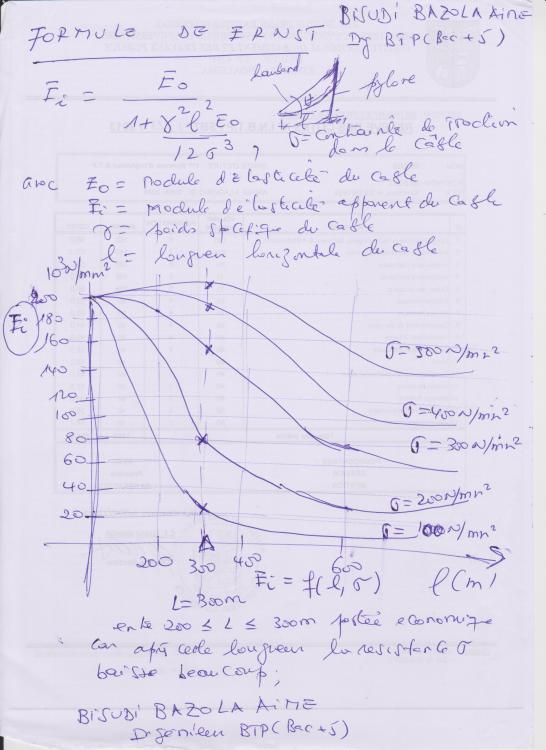 FORMULE DE ERNST
BISUDI BAZOLA AIME
Ig BTP (Bac + 5)
hauban
pylone
Ei = E0 / (1 + γ²l²E0 / 12σ³),
σ = contrainte de traction
dans le câble
avec E0 = module d'élasticité du cable
Ei = module d'élasticité apparent du cable
γ = poids spécifique du cable
l = longueur horizontale du cable
10³N/mm²
Ei
200
180
160
140
120
100
80
60
40
20
σ = 500 N/mm²
σ = 400 N/mm²
σ = 300 N/mm²
σ = 200 N/mm²
σ = 100 N/mm²
200 300 400 600
Ei = f(l, σ) l (m)
L = 300m
entre 200 ≤ L ≤ 300m portée economique
car après cette longueur la resistance σ
baisse beaucoup;
BISUDI BAZOLA AIME
Ingenieur BTP (Bac + 5)